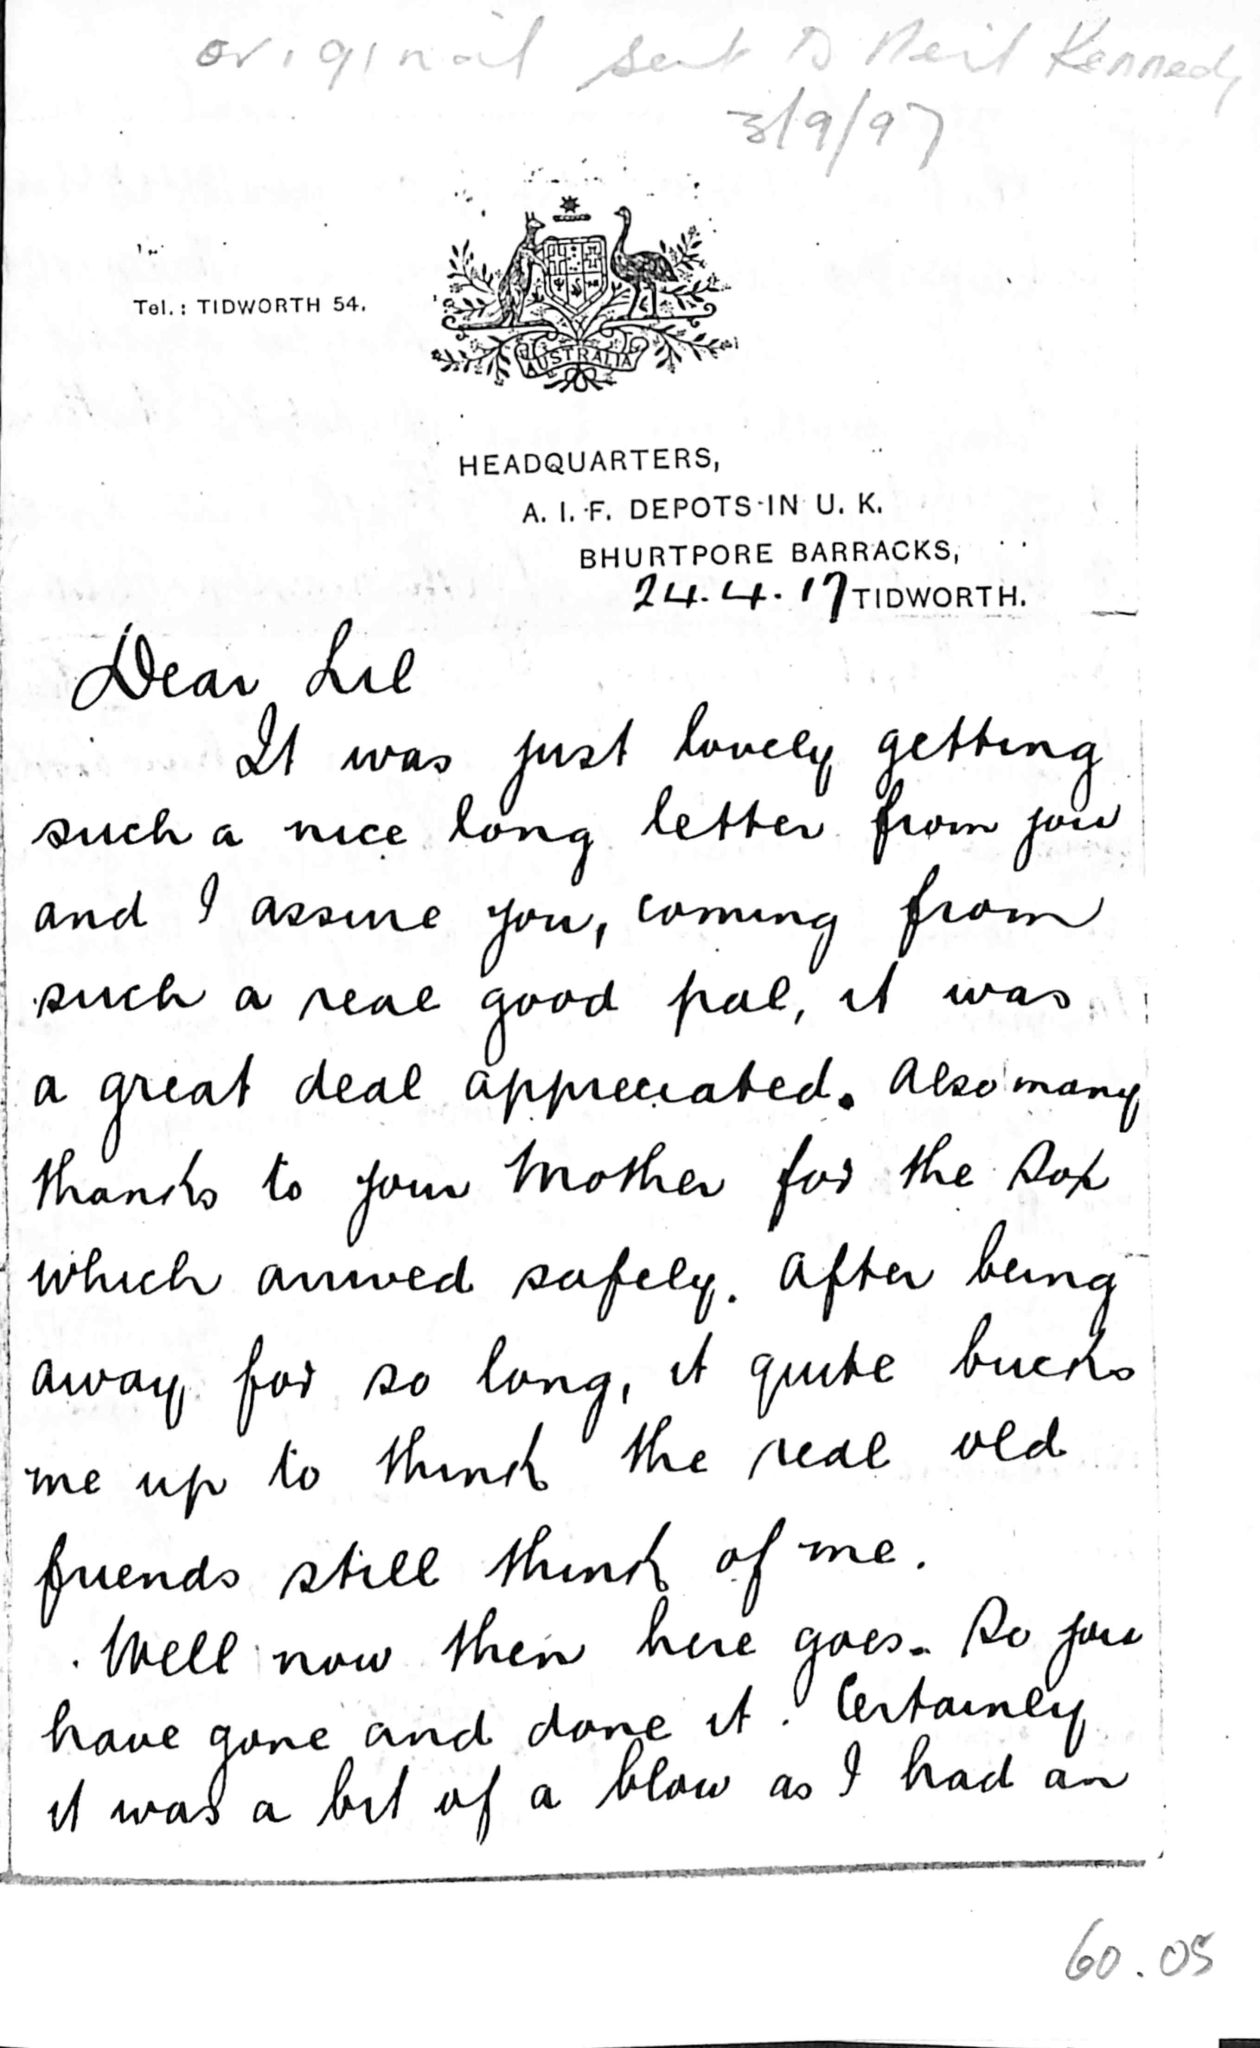 original sent to Neil Kennedy
3/9/97
Tel.: TIDWORTH 54.
AUSTRALIA
HEADQUARTERS,
A. I. F. DEPOTS IN U. K.
BHURTPORE BARRACKS,
24.4.17 TIDWORTH.
Dear Lil
It was just lovely getting
such a nice long letter from you
and I assure you, coming from
such a real good pal, it was
a great deal appreciated. Also many
thanks to your Mother for the Sox
which arrived safely. After being
away for so long, it quite bucks
me up to think the real old
friends still think of me.
Well now then here goes. So you
have gone and done it. Certainly
it was a bit of a blow as I had an
60.05